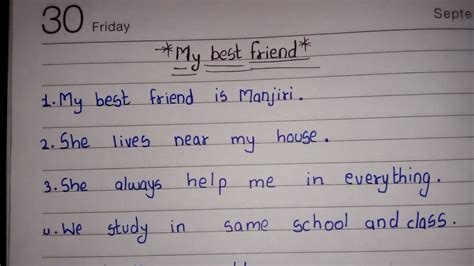 30 Friday
Septe
*My best friend*
1. My best friend is Manjiri.
2. She lives near my house.
3. She always help me in everything.
4. We study in same school and class.